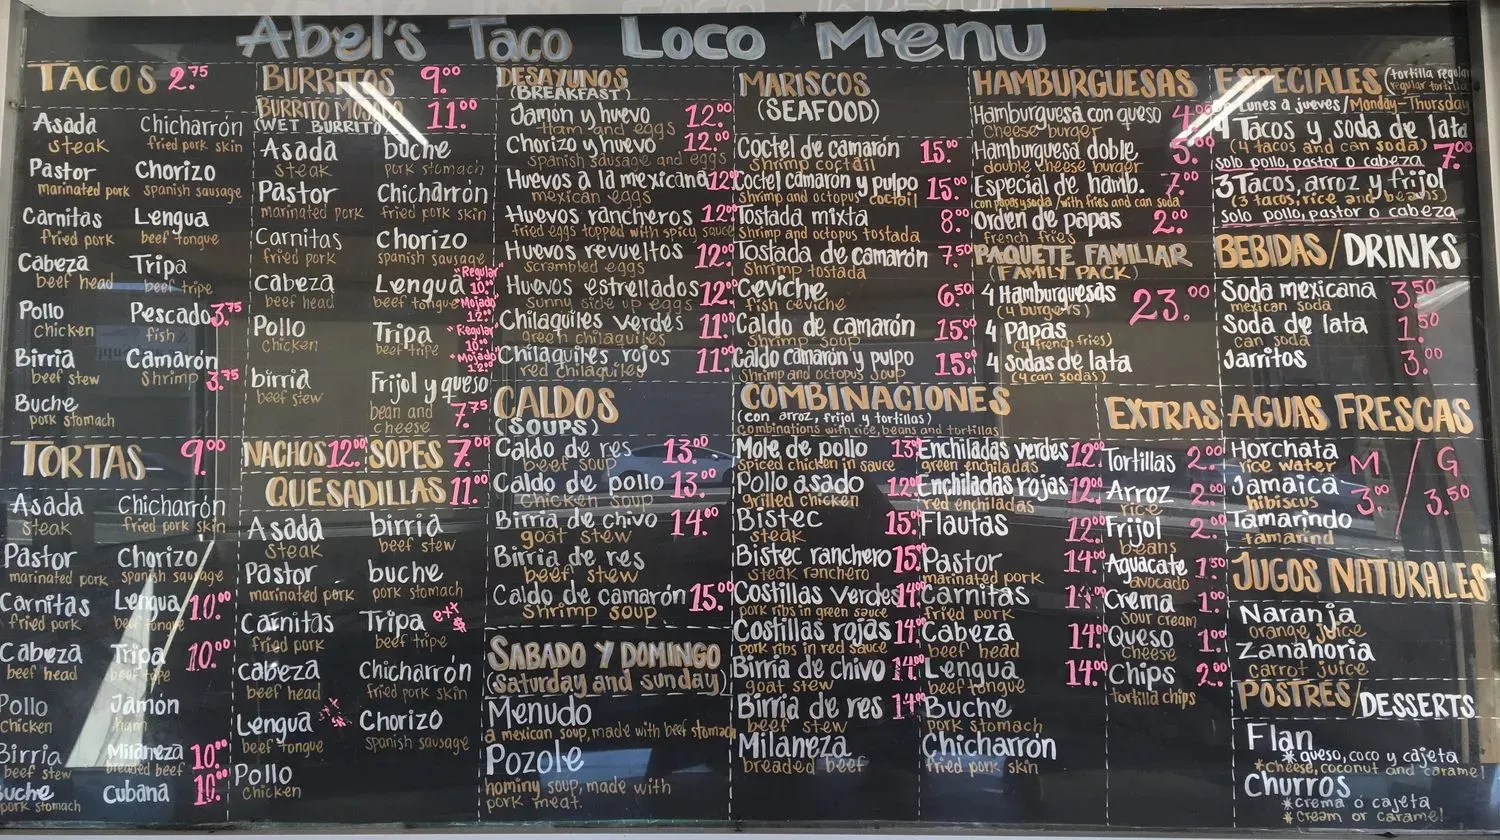 Abel's Taco Loco Menu
TACOS 2.75
Asada
steak
Chicharrón
fried pork skin
Pastor
marinated pork
Chorizo
spanish sausage
Carnitas
fried pork
Lengua
beef tongue
Cabeza
beef head
Tripa
beef tripe
Pollo
chicken
Pescado 3.75
fish
Birria
beef stew
Camarón
shrimp 3.75
Buche
pork stomach
TORTAS 9.00
Asada
steak
Chicharrón
fried pork skin
Pastor
marinated pork
Chorizo
spanish sausage
Carnitas
fried pork
Lengua 10.00
beef tongue
Cabeza
beef head
Tripa 10.00
beef tripe
Pollo
chicken
Jamón
ham
Birria
beef stew
Milaneza 10.00
breaded beef
Buche
pork stomach
Cubana 10.00
BURRITOS 9.00
BURRITO MOJADO 11.00
(WET BURRITO)
Asada
steak
buche
pork stomach
Pastor
marinated pork
Chicharrón
fried pork skin
Carnitas
fried pork
Chorizo
spanish sausage
Cabeza
beef head
Lengua "Regular" 10.00
beef tongue "Mojado" 12.00
Pollo
chicken
Tripa "Regular" 10.00
beef tripe "Mojado" 12.00
birria
beef stew
Frijol y queso
bean and
cheese 7.75
NACHOS 12.00 SOPES 7.00
QUESADILLAS 11.00
Asada
steak
birria
beef stew
Pastor
marinated pork
buche
pork stomach
Carnitas
fried pork
Tripa ext $
beef tripe
Cabeza
beef head
Chicharrón
fried pork skin
Lengua
beef tongue
Chorizo
spanish sausage
Pollo
chicken
DESAYUNOS
(BREAKFAST)
Jamón y huevo 12.00
Ham and eggs
Chorizo y huevo 12.00
spanish sausage and eggs
Huevos a la mexicana 12.00
mexican eggs
Huevos rancheros 12.00
fried eggs topped with spicy sauce
Huevos revueltos 12.00
scrambled eggs
Huevos estrellados 12.00
sunny side up eggs
Chilaquiles verdes 11.00
green chilaquiles
Chilaquiles rojos 11.00
red chilaquiles
CALDOS
(SOUPS)
Caldo de res 13.00
beef soup
Caldo de pollo 13.00
chicken soup
Birria de chivo 14.00
goat stew
Birria de res
beef stew
Caldo de camarón 15.00
shrimp soup
SABADO Y DOMINGO
(Saturday and sunday)
Menudo
a mexican soup, made with beef stomach
Pozole
hominy soup, made with
pork meat.
MARISCOS
(SEAFOOD)
Coctel de camarón 15.00
shrimp coctail
Coctel camarón y pulpo 15.00
shrimp and octopus coctail
Tostada mixta 8.00
shrimp and octopus tostada
Tostada de camarón 7.50
shrimp tostada
Ceviche 6.50
fish ceviche
Caldo de camarón 15.00
shrimp soup
Caldo camarón y pulpo 15.00
shrimp and octopus soup
COMBINACIONES
(con arroz, frijol y tortillas)
combinations with rice, beans and tortillas
Mole de pollo 13.00
spiced chicken in sauce
Pollo asado 12.00
grilled chicken
Bistec 15.00
steak
Bistec ranchero 15.00
steak ranchero
Costillas verdes 14.00
pork ribs in green sauce
Costillas rojas 14.00
pork ribs in red sauce
Birria de chivo 14.00
goat stew
Birria de res 14.00
beef stew
Milaneza
breaded beef
Enchiladas verdes 12.00
green enchiladas
Enchiladas rojas 12.00
red enchiladas
Flautas 12.00
Pastor 14.00
marinated pork
Carnitas 14.00
fried pork
Cabeza 14.00
beef head
Lengua 14.00
beef tongue
Buche
pork stomach
Chicharrón
fried pork skin
HAMBURGUESAS
Hamburguesa con queso 4.00
cheese burger
Hamburguesa doble 5.00
double cheese burger
Especial de hamb. 7.00
con papas y soda/with fries and can soda
Orden de papas 2.00
french fries
PAQUETE FAMILIAR
(FAMILY PACK)
4 Hamburguesas 23.00
(4 burgers)
4 Papas
(4 french fries)
4 Sodas de lata
(4 can sodas)
EXTRAS
Tortillas 2.00
Arroz 2.00
rice
Frijol 2.00
beans
Aguacate 1.50
avocado
Crema 1.00
sour cream
Queso 1.00
cheese
Chips 2.00
tortilla chips
ESPECIALES (tortilla regular
regular tortilla)
Lunes a jueves/Monday-Thursday
4 Tacos y soda de lata 7.00
(4 tacos and can soda)
solo pollo, pastor o cabeza
3 Tacos, arroz y frijol
(3 tacos, rice and beans)
solo pollo, pastor o cabeza
BEBIDAS/DRINKS
Soda mexicana 3.50
mexican soda
Soda de lata 1.50
can soda
Jarritos 3.00
AGUAS FRESCAS
Horchata M / G
rice water
Jamaica 3.00 / 3.50
hibiscus
Tamarindo
tamarind
JUGOS NATURALES
Naranja
orange juice
Zanahoria
carrot juice
POSTRES/DESSERTS
Flan
*queso, coco y cajeta
*cheese, coconut and caramel
Churros
*crema o cajeta
*cream or caramel